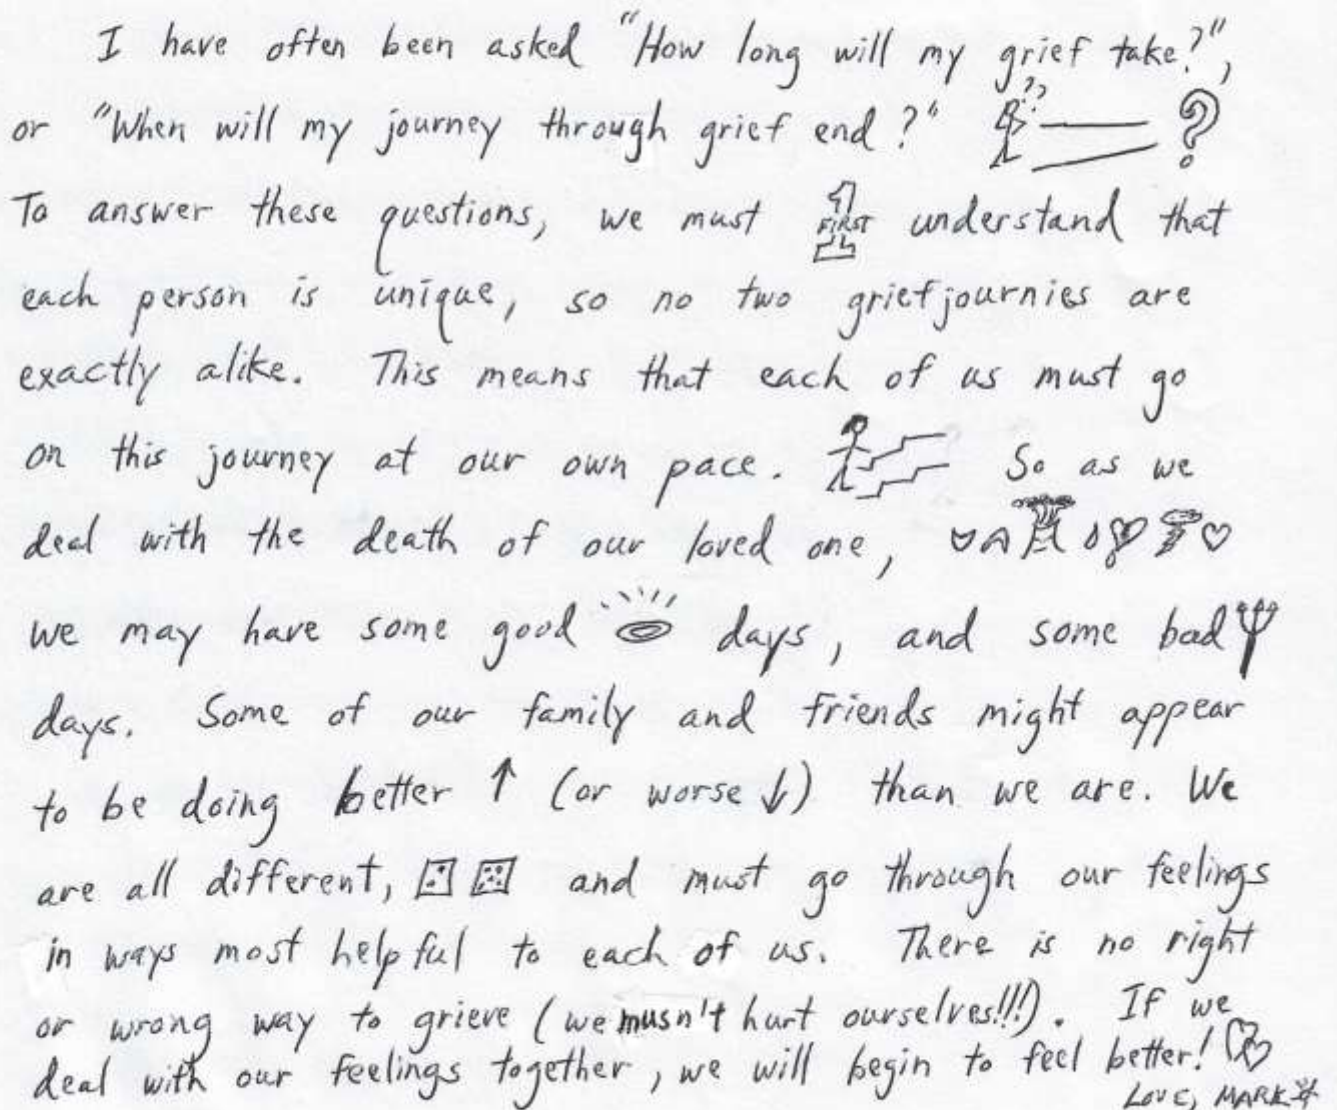 I have often been asked "How long will my grief take?",
or "When will my journey through grief end?" ?? ?
To answer these questions, we must 1 FIRST understand that
each person is unique, so no two griefjournies are
exactly alike. This means that each of us must go
on this journey at our own pace. So as we
deal with the death of our loved one,
we may have some good days, and some bad
days. Some of our family and friends might appear
to be doing better ↑ (or worse ↓) than we are. We
are all different, and must go through our feelings
in ways most helpful to each of us. There is no right
or wrong way to grieve (we musn't hurt ourselves!!!). If we
deal with our feelings together, we will begin to feel better!
LOVE, MARK